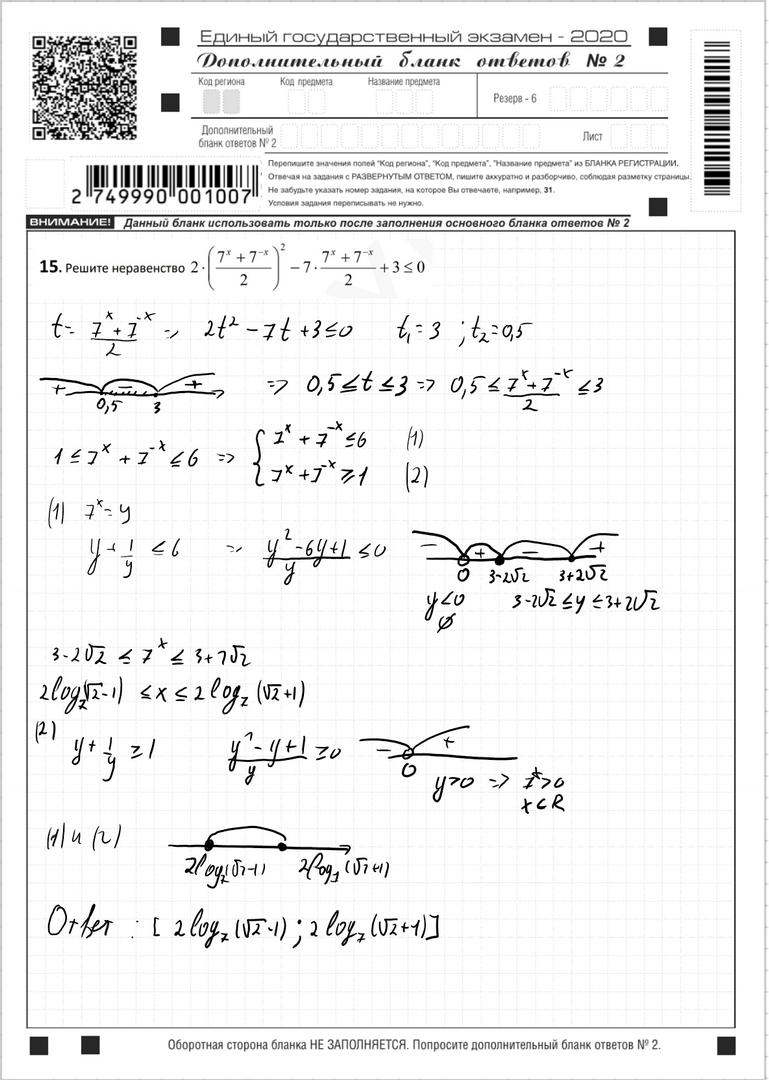 Единый государственный экзамен - 2020
Дополнительный бланк ответов № 2
Код региона Код предмета Название предмета
Резерв - 6
Дополнительный бланк ответов № 2
Лист
Перепишите значения полей "Код региона", "Код предмета", "Название предмета" из БЛАНКА РЕГИСТРАЦИИ.
Отвечая на задания с РАЗВЕРНУТЫМ ОТВЕТОМ, пишите аккуратно и разборчиво, соблюдая разметку страницы.
Не забудьте указать номер задания, на которое Вы отвечаете, например, 31.
Условия задания переписывать не нужно.
2 749990 001007
ВНИМАНИЕ! Данный бланк использовать только после заполнения основного бланка ответов № 2
15. Решите неравенство 2·((7^x + 7^-x)/2)^2 − 7·(7^x + 7^-x)/2 + 3 ≤ 0
t = (7^x + 7^-x)/2 => 2t^2 − 7t + 3 ≤ 0 t₁ = 3 ; t₂ = 0,5
+ − + 0,5 3 => 0,5 ≤ t ≤ 3 => 0,5 ≤ (7^x + 7^-x)/2 ≤ 3
1 ≤ 7^x + 7^-x ≤ 6 => { 7^x + 7^-x ≤ 6 (1)
7^x + 7^-x ≥ 1 (2)
(1) 7^x = y
y + 1/y ≤ 6 => (y^2 − 6y + 1)/y ≤ 0 − + − +
0 3-2√2 3+2√2
y<0 3-2√2 ≤ y ≤ 3+2√2
∅
3-2√2 ≤ 7^x ≤ 3+2√2
2log₇(√2-1) ≤ x ≤ 2log₇(√2+1)
(2) y + 1/y ≥ 1 (y^2 − y + 1)/y ≥ 0 − + 0
y>0 => 7^x>0
x∈R
(1) и (2)
2log₇(√2-1) 2log₇(√2+1)
Ответ : [ 2log₇(√2-1) ; 2log₇(√2+1)]
Оборотная сторона бланка НЕ ЗАПОЛНЯЕТСЯ. Попросите дополнительный бланк ответов № 2.